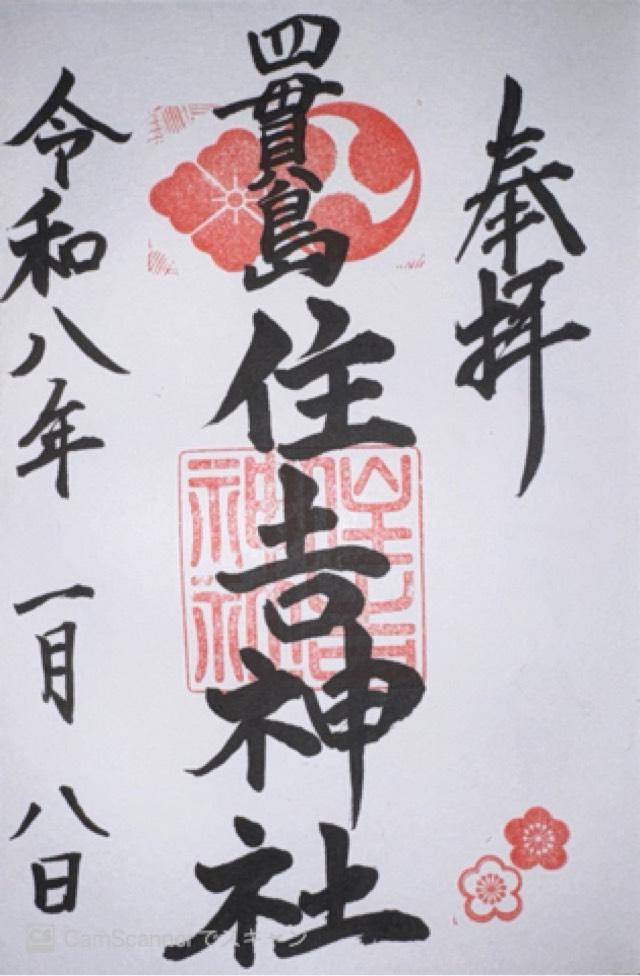 奉拝
四貫島
住吉神社
令和八年 一月 八日
CamScannerでスキャン